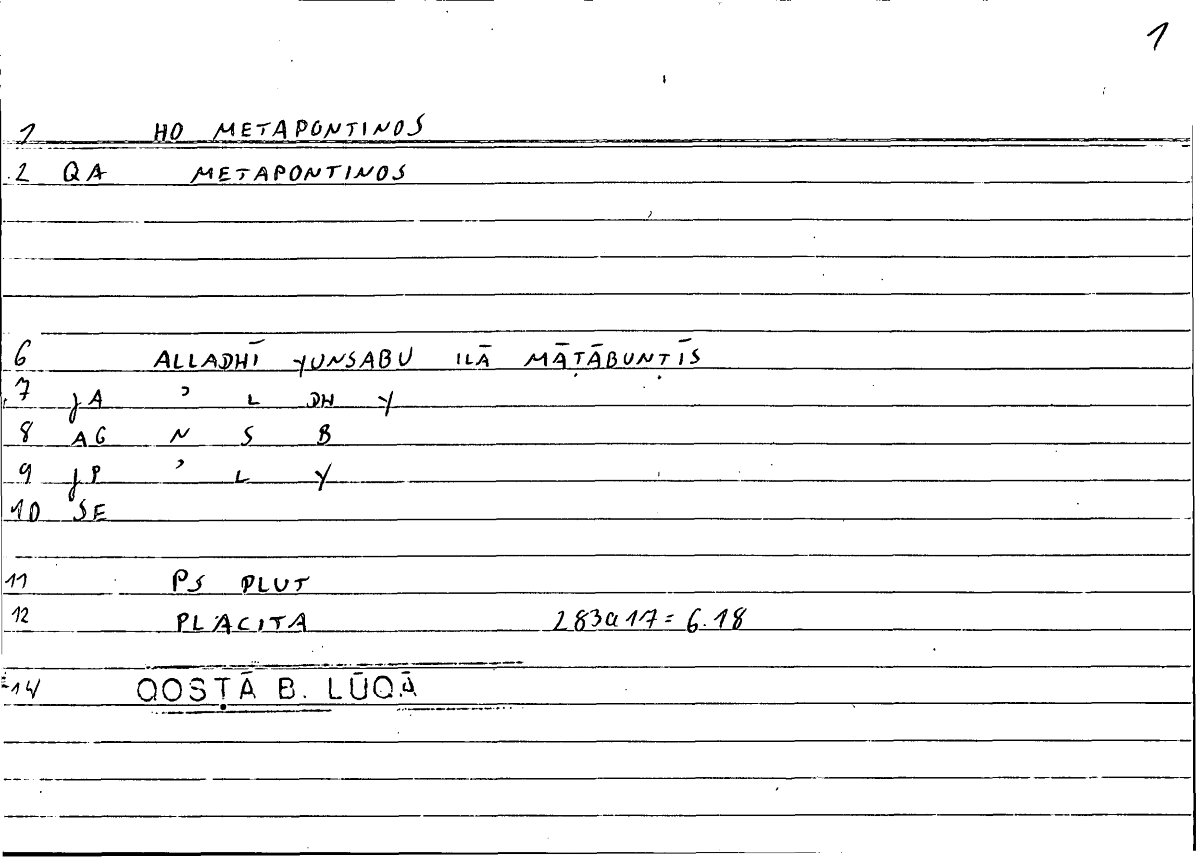 1
1 HO METAPONTINOS
2 QA METAPONTINOS
6 ALLADHĪ YUNSABU ILĀ MĀṬĀBUNṬĪS
7 JA ʾ L DH Y
8 AG N S B
9 JP ʾ L Y
10 SE
11 PS PLUT
12 PLACITA 283a17=6.18
14 QOSṬĀ B. LŪQĀ